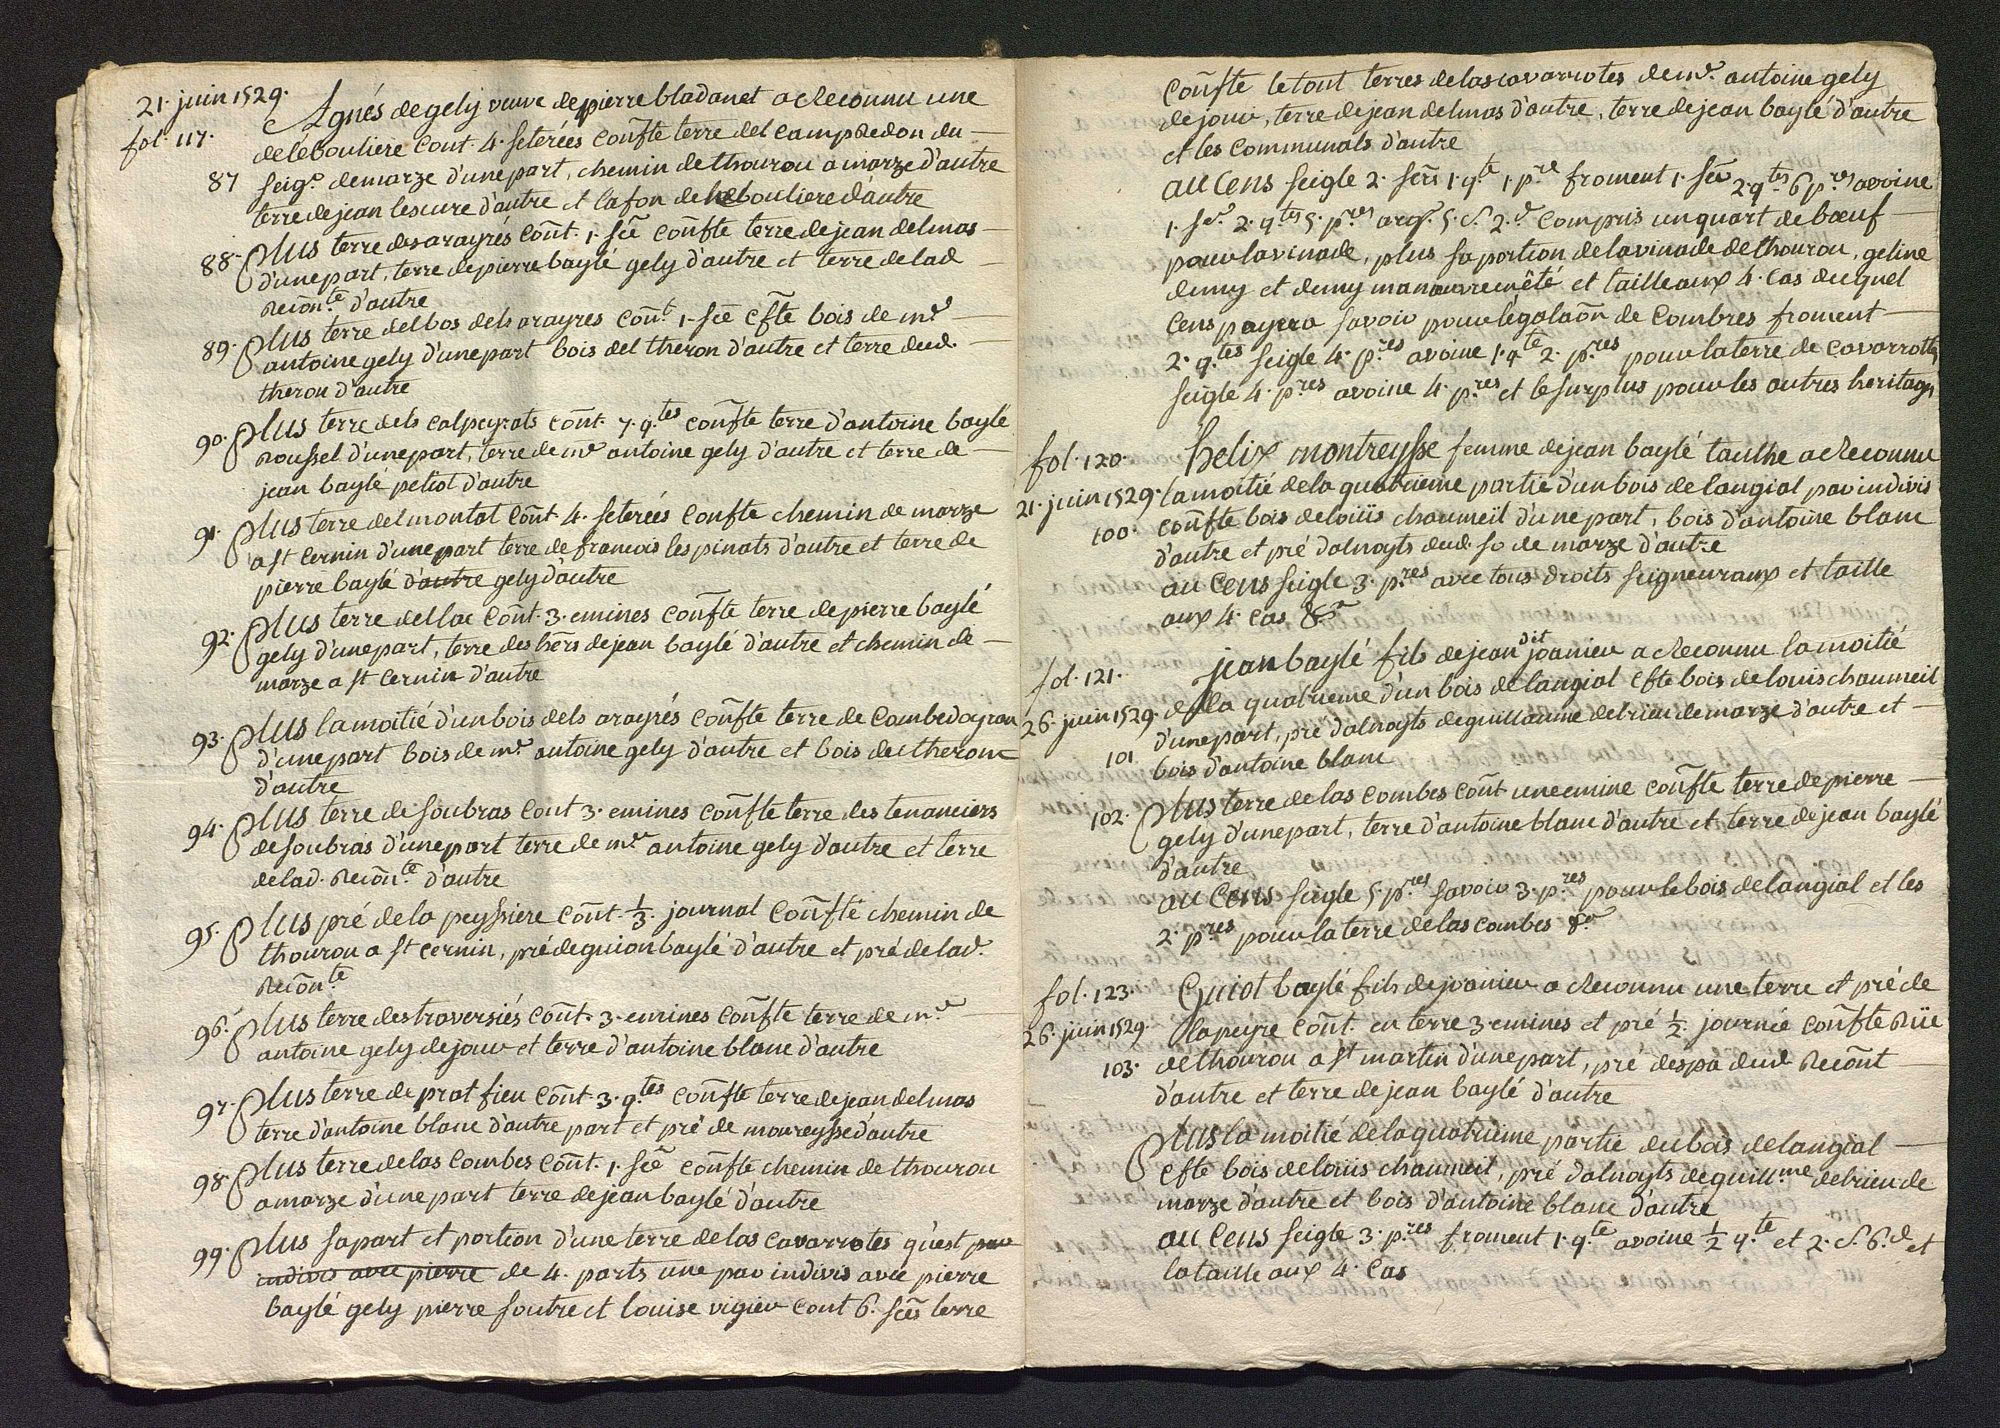 21. juin 1529.
fol. 117.
Agnés de gely veuve de pierre bladanet a Reconnu une
de lébouliere Cont. 4. seterées Confte terre del Campredon du
87 seigr. de marze d'une part, chemin de thourou a marze d'autre
terre de jean lescure d'autre et la fon de lebouliere d'autre
88. Plus terre des arayrés Cont. 1. see confte terre de jean delmas
d'une part, terre de pierre baylé gely d'autre et terre de lad.
Reconte. d'autre
89. Plus terre del bos dels arayres Cont. 1. see Cfte bois de me
antoine gely d'une part bois del theron d'autre et terre dud.
theron d'autre
90. Plus terre dels calpeyrats Cont. 7. qtes confte terre d'antoine baylé
Roussel d'une part, terre de me antoine gely d'autre et terre de
jean baylé petiot d'autre
91. Plus terre del montat Cont. 4. seterées confte chemin de marze
a st Cernin d'une part terre de francois lespinats d'autre et terre de
pierre baylé d'autre gely d'autre
92. Plus terre del lac Cont. 3. emines Confte terre de pierre baylé
gely d'une part, terre des hers de jean baylé d'autre et chemin de
marze a st Cernin d'autre
93. Plus la moitié d'un bois dels arayrés Confte terre de Combedayran
d'une part bois de me antoine gely d'autre et bois del theron
d'autre
94. Plus terre de soubras Cont 3. emines Confte terre des tenanciers
de soubras d'une part terre de me antoine gely d'autre et terre
de lad. Reconte. d'autre
95. Plus pré de la peyssiere Cont. 1/3. journal Confte chemin de
thourou a st Cernin, pré de guion baylé d'autre et pré de lad.
Reconte
96. Plus terre des traversiés Cont. 3. emines Confte terre de me
antoine gely de jou et terre d'antoine blanc d'autre
97. Plus terre de prat sieu Cont. 3. qtes Confte terre de jean delmas
terre d'antoine blanc d'autre part et pré de moureysse d'autre
98. Plus terre de las Combes Cont. 1. see confte chemin de thourou
a marze d'une part terre de jean baylé d'autre
99. Plus sa part et portion d'une terre de las cavarrotes qu'est par
indivis avec pierre de 4. parts une par indivis avec pierre
baylé gely pierre soutre et louise vigier cont 6. sees terre
Confte le tout terres de las cavarrotes de me. antoine gely
de jou, terre de jean delmas d'autre, terre de jean baylé d'autre
et les Communals d'autre
au Cens seigle 2. sers 1. qte 1. pre froment 1. ser 2. qtes 6 pres avoine
1. ser. 2. qtes 5. pres arg. 5 s. 2. d. Compris un quart de bœuf
pour la vinade, plus sa portion de la vinade de thourou, geline
demy et demy manœuvre en été et taille aux 4. cas duquel
Cens payera savoir pour légalaon de Combres froment
2. qtes seigle 4. pres avoine 1. qte 2. pres pour la terre de cavarrottes
seigle 4. pres avoine 4. pres et le surplus pour les autres heritages
fol. 120. helix montreysse femme de jean baylé taulhe a Reconnu
21. juin 1529. la moitié de la quatrieme partie d'un bois de langial par indivis
100. confte bois de loüis chaumeil d'une part, bois d'antoine blanc
d'autre et pré dalnoyts dud. so de marze d'autre
au Cens seigle 3. pres avec tous droits seigneuraux et taille
aux 4. cas &a
fol. 121. jean baylé fils de jean dit joanieu a Reconnu la moitié
26. juin 1529. de la quatrieme d'un bois de langial Cfte bois de louis chaumeil
d'une part, pré dalnoyts de guillaume delrieu de marze d'autre et
101 bois d'antoine blanc
102. Plus terre de las combes cont une emine Confte terre de pierre
gely d'une part, terre d'antoine blanc d'autre et terre de jean baylé
d'autre
au Cens seigle 5. pres savoir 3. pres pour le bois de langial et les
2. pres pour la terre de las combes &a
fol. 123. Guiot baylé fils de joanieu a Reconnu une terre et pré de
26. juin 1529. la peyre Cont. en terre 3. emines et pré 1/2. journée Confte Rüe
103. de thourou a st martin d'une part, pré despa dud. Recont
d'autre et terre de jean baylé d'autre
Plus la moitié de la quatrieme partie du bois de langial
Cfte bois de loüis chaumeil, pré dalnoyts de guillme delrieu de
marze d'autre et bois d'antoine blanc d'autre
au Cens seigle 3. pres froment 1. qte avoine 1/2 qte et 2. s. 6. d. et
la taille aux 4. Cas